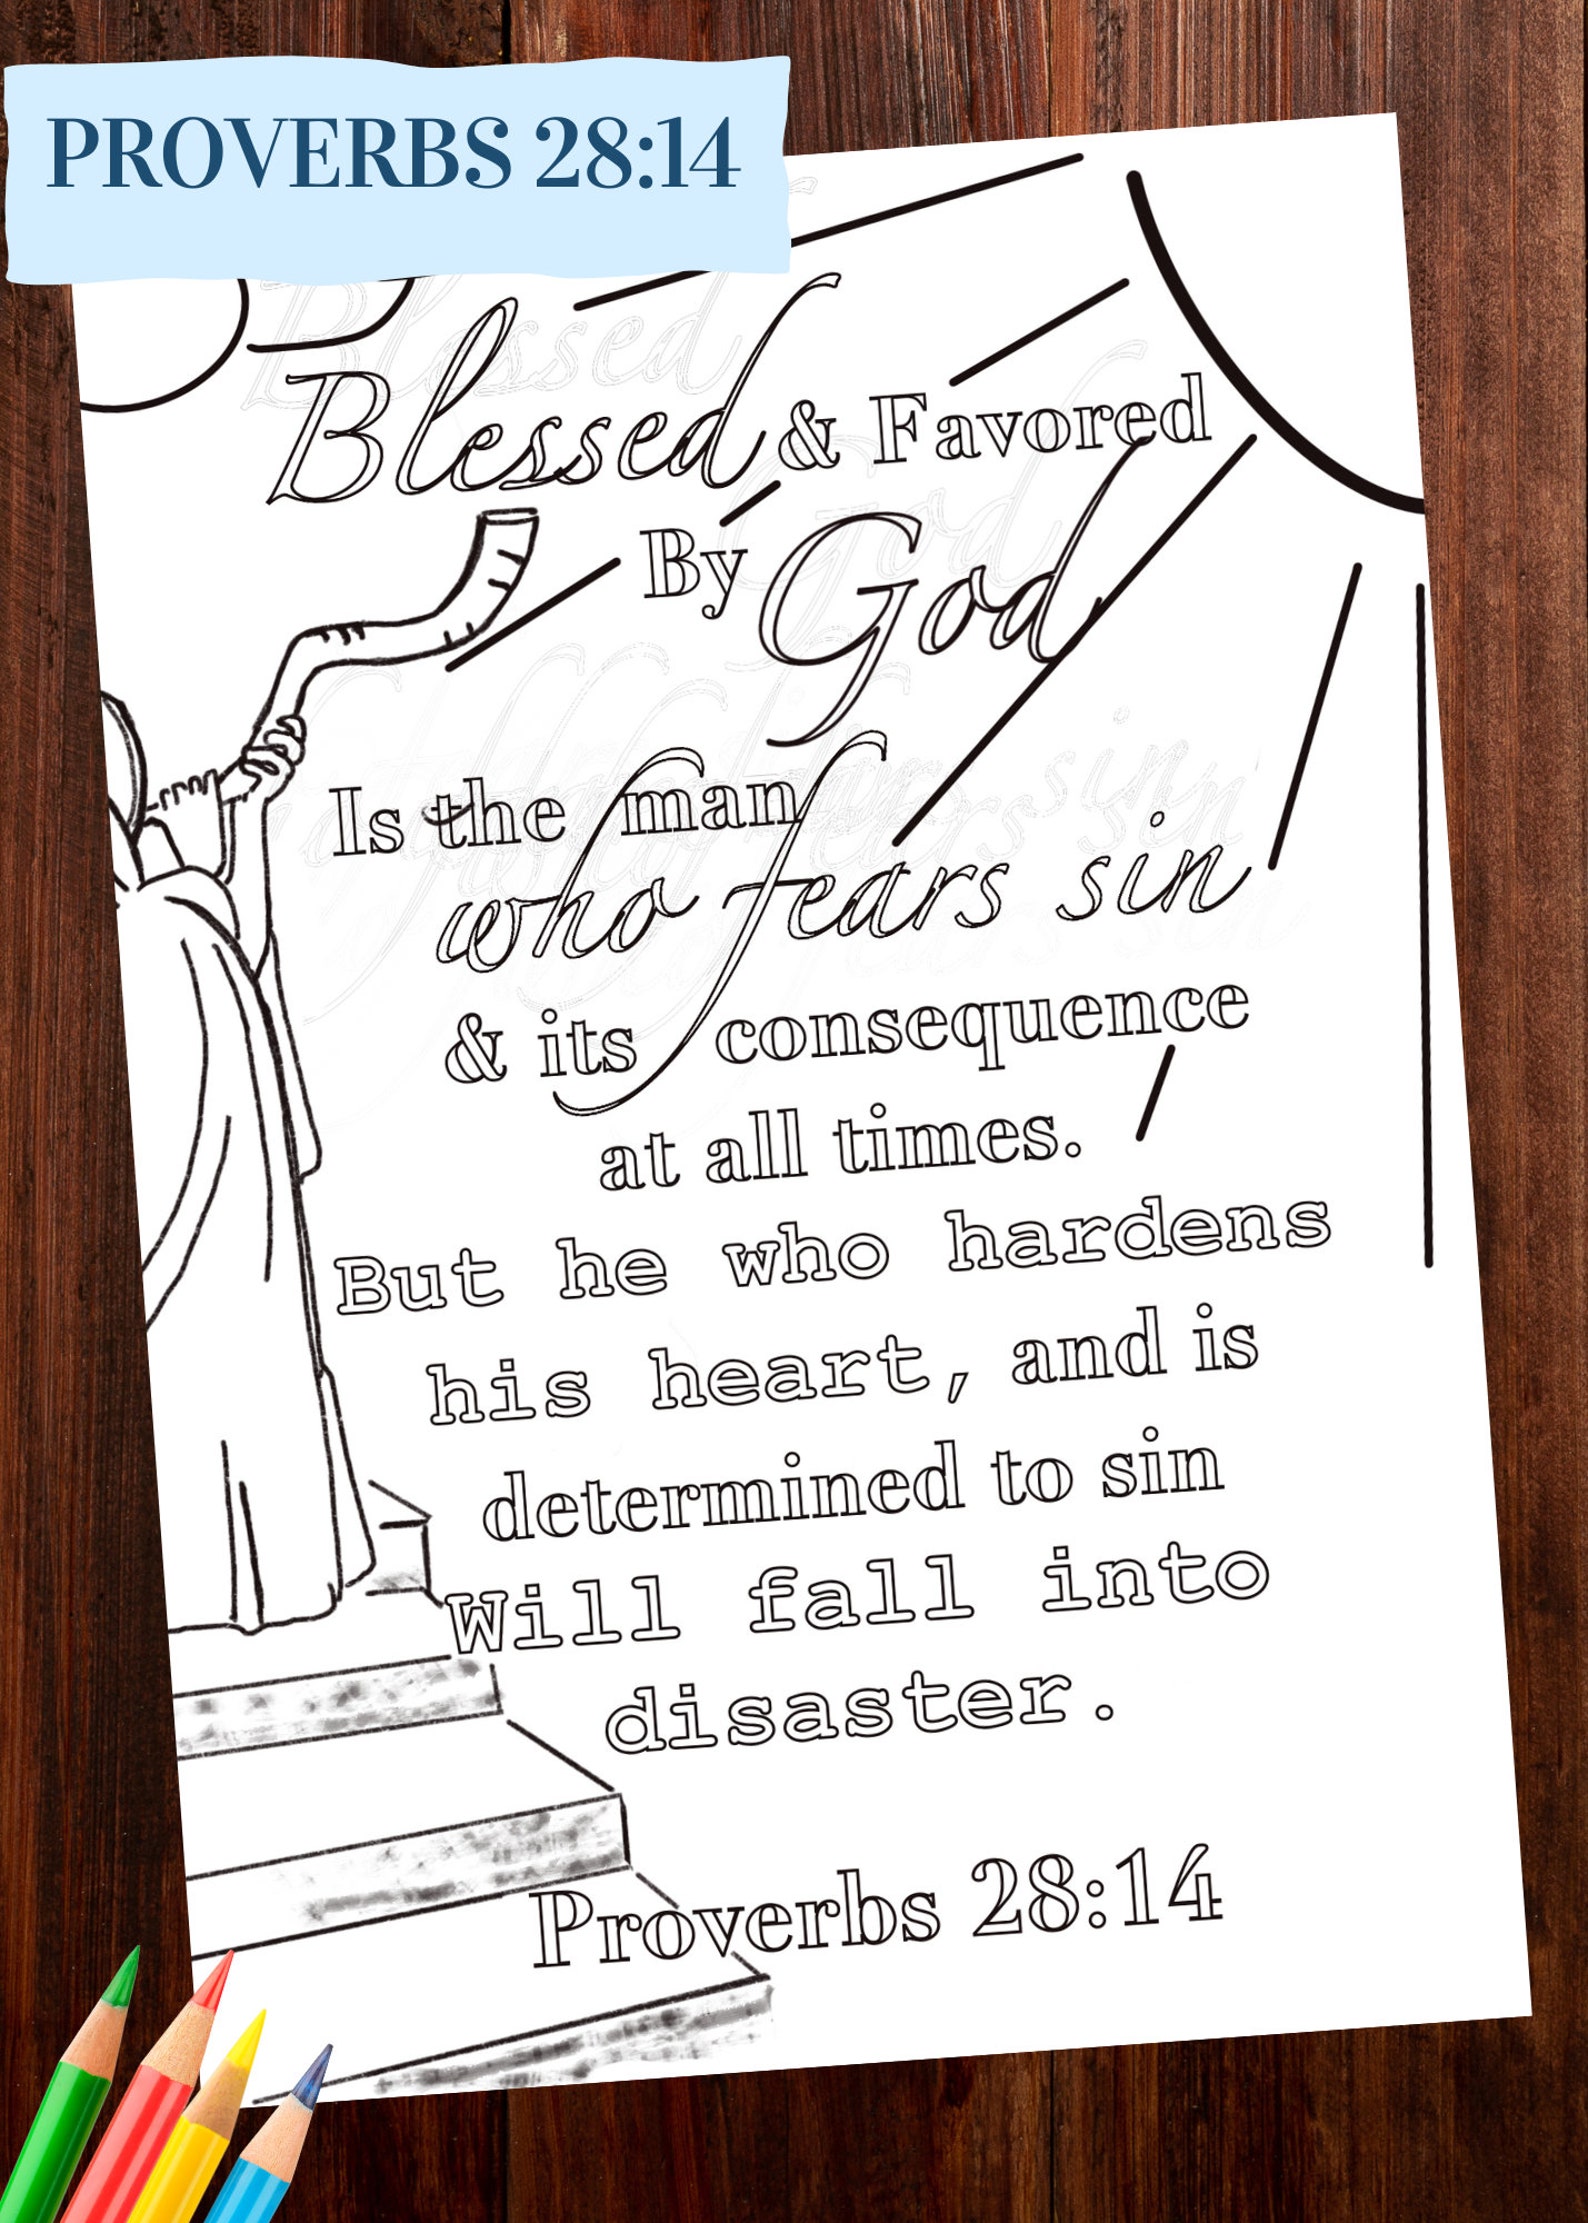 PROVERBS 28:14
Blessed & Favored
By God
Is the man
who fears sin
& its consequence
at all times.
But he who hardens
his heart, and is
determined to sin
Will fall into
disaster.
Proverbs 28:14